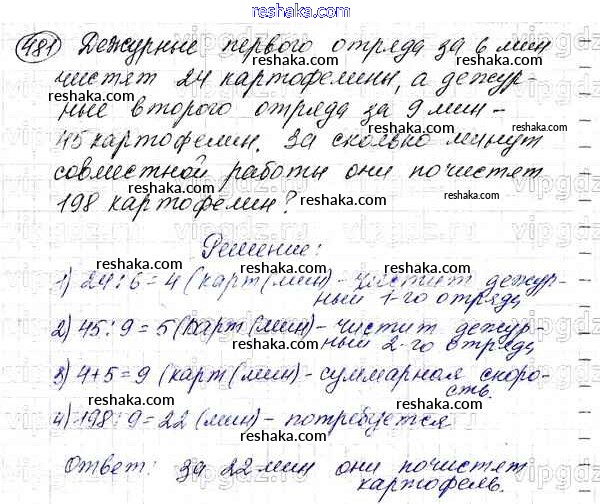 reshaka.com
481 Дежурные первого отряда за 6 мин
reshaka.com
чистят 24 картофелины, а дежур-
reshaka.com
ные второго отряда за 9 мин –
reshaka.com
45 картофелин. За сколько минут
reshaka.com
совместной работы они почистят
reshaka.com
198 картофелин?
reshaka.com
Решение:
reshaka.com
1) 24:6=4 (карт/мин) - чистит дежур-
ный 1-го отряда
reshaka.com
2) 45:9=5 (карт/мин) - чистит дежур-
ный 2-го отряда
reshaka.com
3) 4+5=9 (карт/мин) - суммарная скоро-
сть.
reshaka.com
4) 198:9=22 (мин) - потребуется
reshaka.com
Ответ: за 22 мин они почистят
картофель.
reshaka.com
vipgdz.ru